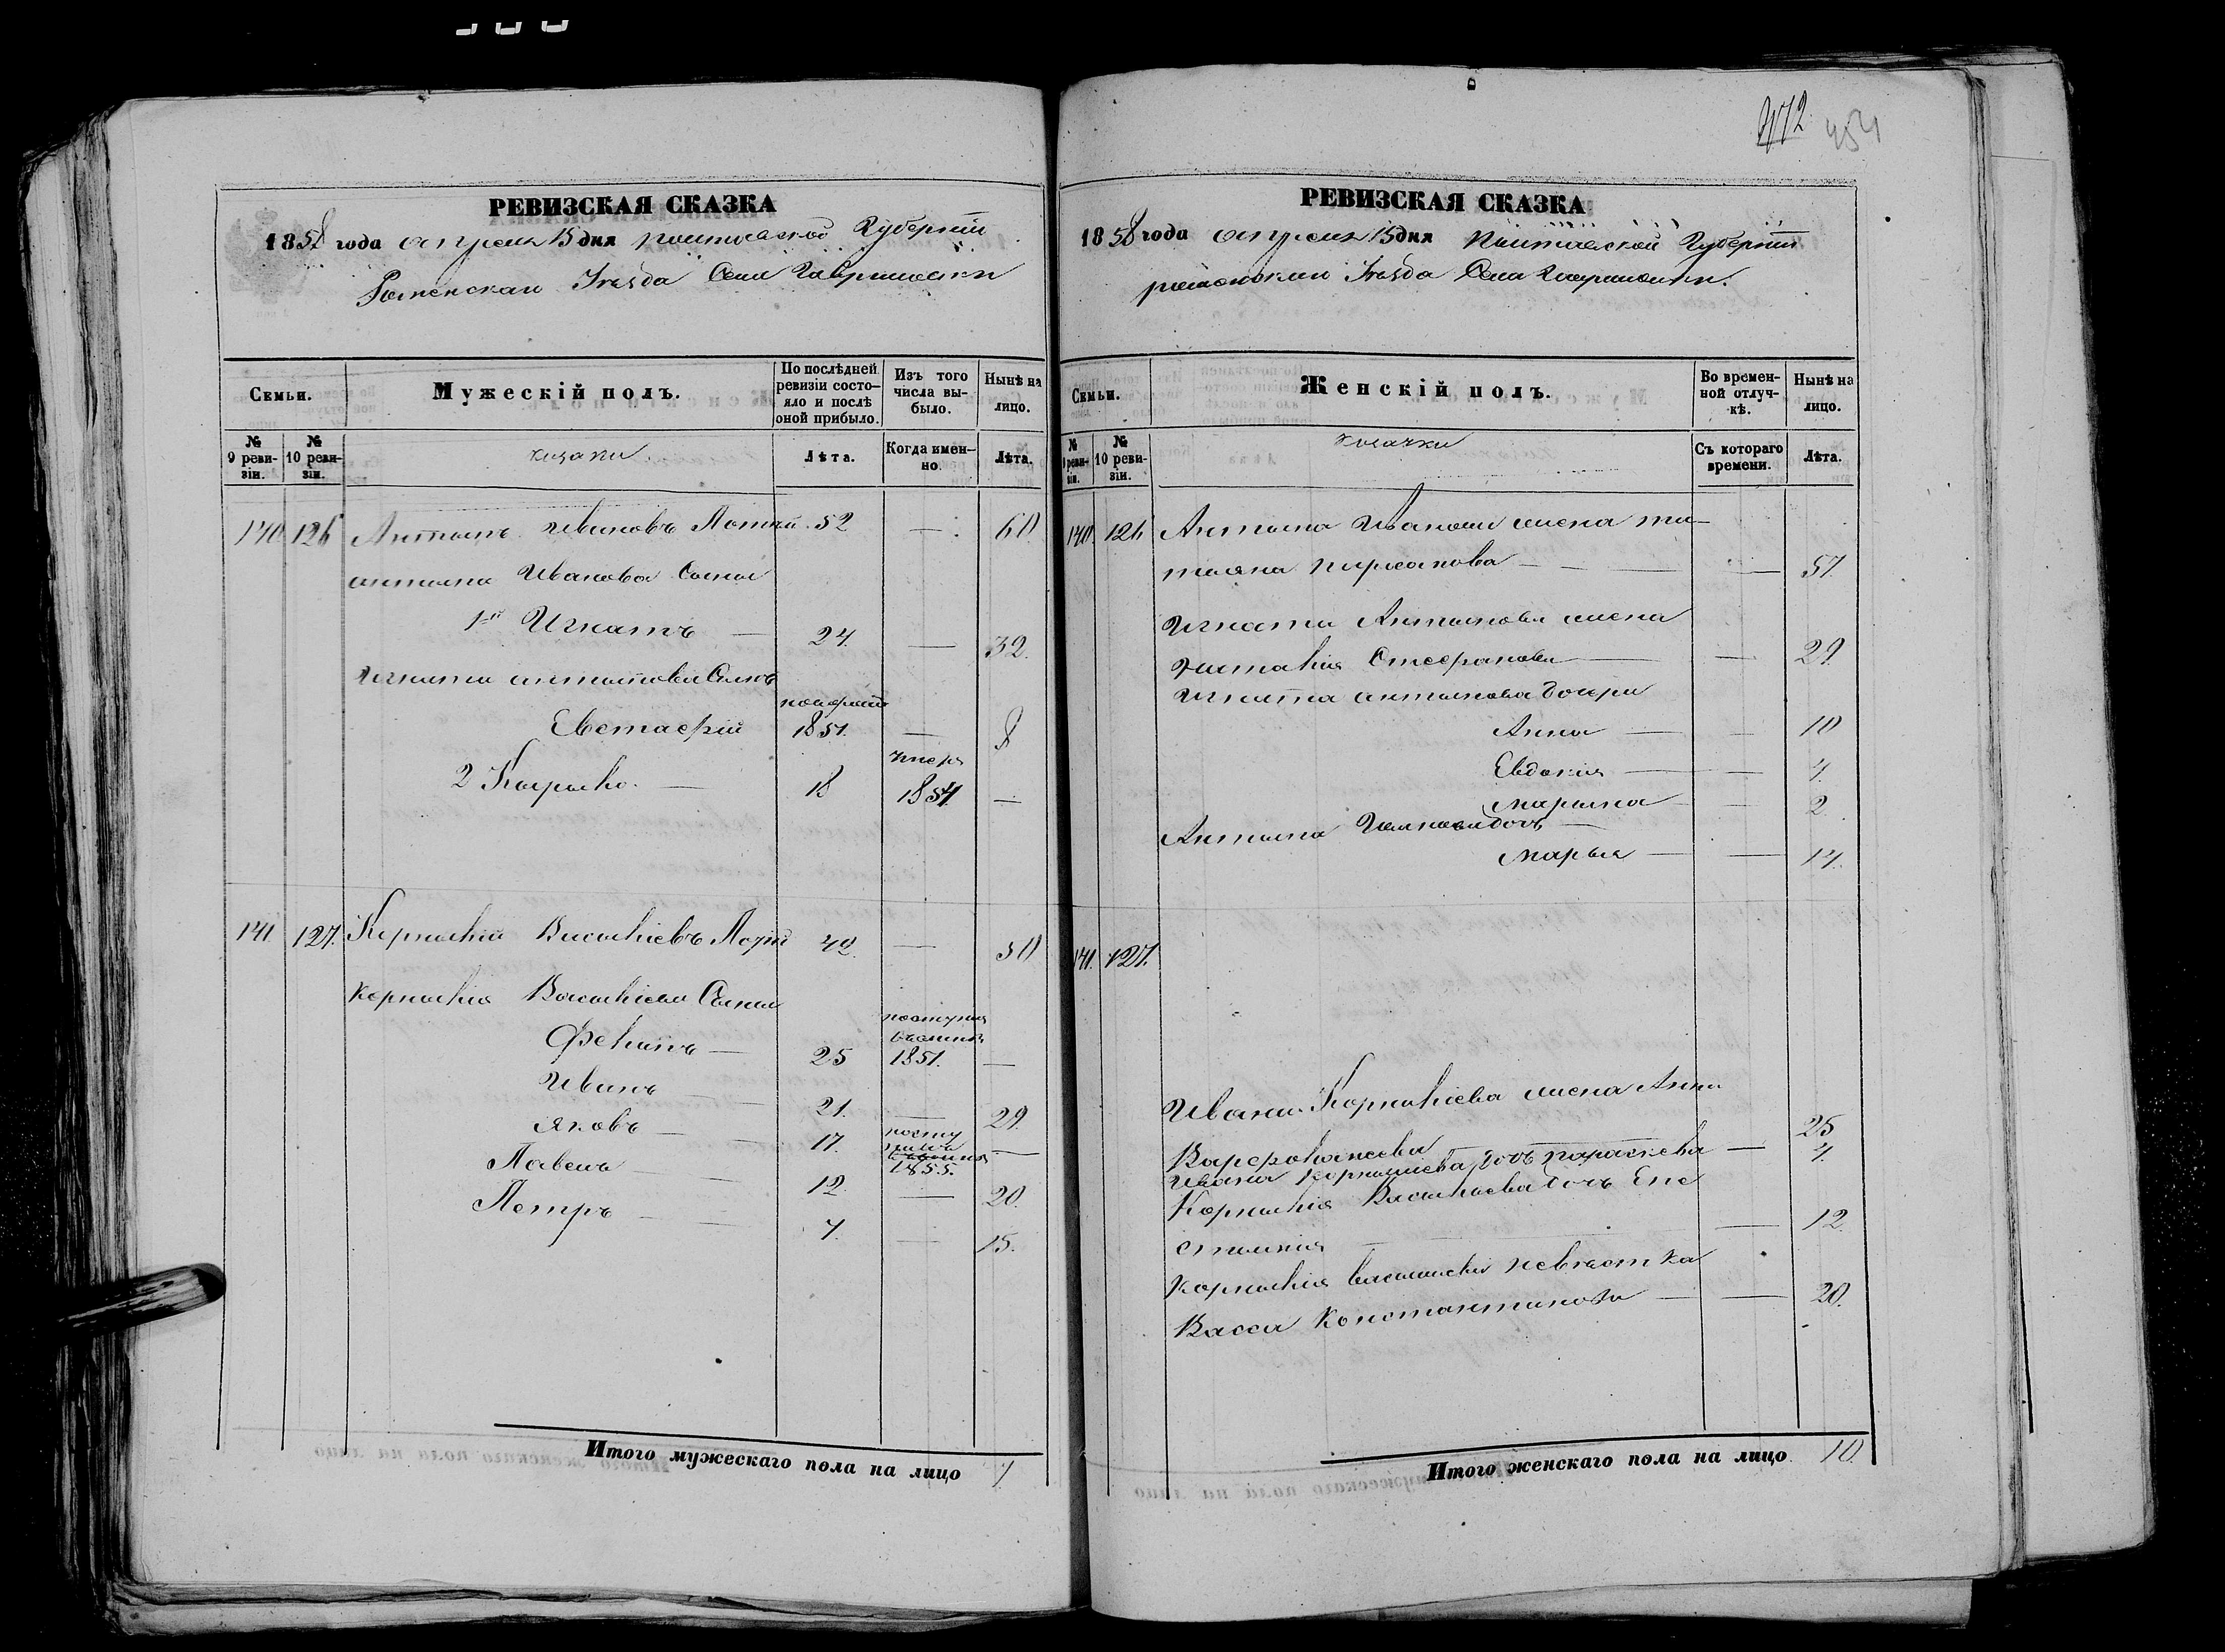 472 454
РЕВИЗСКАЯ СКАЗКА
1858 года апреля 15 дня Полтавской Губерніи
Роменскаго Уезда Села Гавришовки
Семьи.
Мужескій полъ.
По послѣдней ревизіи состояло и послѣ оной прибыло.
Изъ того числа выбыло.
Нынѣ на лицо.
№ 9 ревизіи.
№ 10 ревизіи.
козаки
Лѣта.
Когда именно.
Лѣта.
140 126 Антонъ Ивановъ 52 — 60
Антона Иванова Сыны
1й Игнатъ — 24. — 32.
Игната Антонова Сынъ
Евстафій 1851. — 8
умеръ
2 Кирыло. — 18 1854 —
141 127. Корнилій Василіевъ 42 — 50
Корнилія Василіева Сыны
Филипъ — 25 1851. —
Иванъ — 21. — 29.
Яковъ — 17. посту
пилъ
1855. —
Павелъ — 12. — 20.
Петръ — 7. — 15.
Итого мужескаго пола на лицо 7
РЕВИЗСКАЯ СКАЗКА
1858 года апреля 15 дня Полтавской Губерніи
Роменскаго Уезда Села Гавришовки.
Семьи.
Женскій полъ.
Во временной отлучкѣ.
Нынѣ на лицо.
№ 9 ревизіи.
№ 10 ревизіи.
козачки
Съ котораго времени.
Лѣта.
140. 126 Антона Иванова жена Та-
тіяна — — 57.
Игната Антонова жена
Наталія Стефанова — — 29.
Игната Антонова дочери
Анна — — 10
Евдокія — — 4.
Марина — — 2
Антона дочь —
Марья — — 14.
141. 127.
Ивана Корниліева жена Анна
25
Варфоломеева
Ивана Корниліева дочь Параскева — 4.
Корнилія Василіева дочь Епи
стимія — — 12.
Корнилія Василіева невѣстка
Васса Константинова — — 20.
Итого женскаго пола на лицо 10